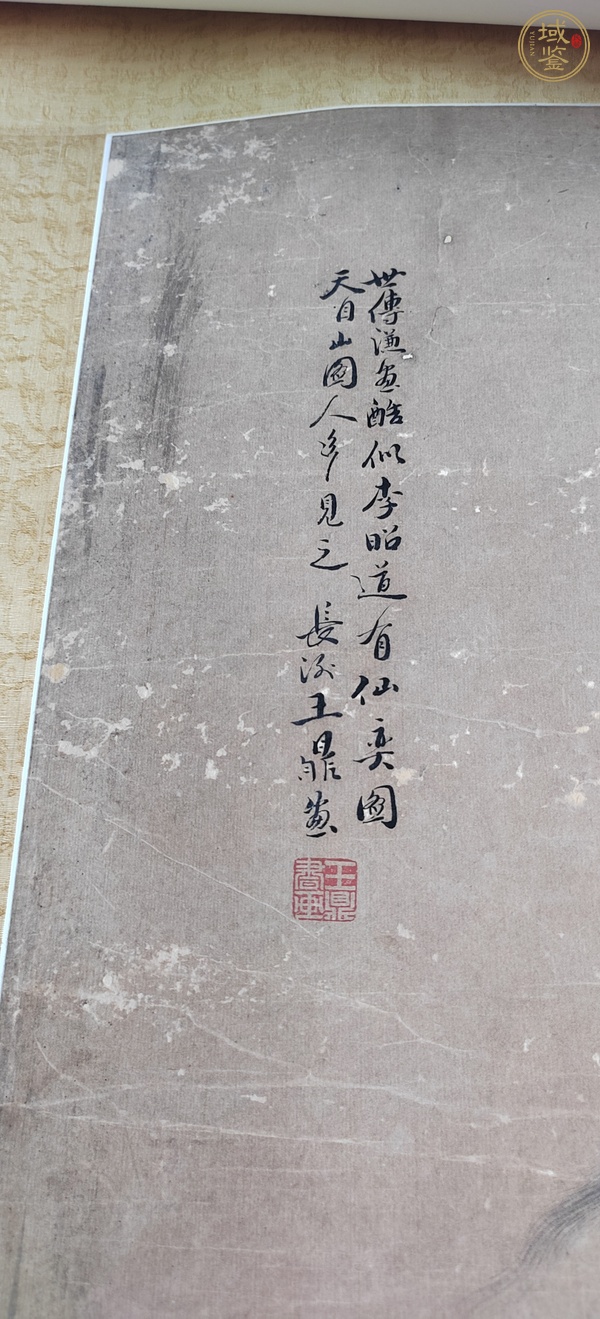 世傳谦畫酷似李昭道有仙奕圖
天目山圖人多見之 長洲王鼎畫
王鼎
書畫
域鑒
YUJIAN